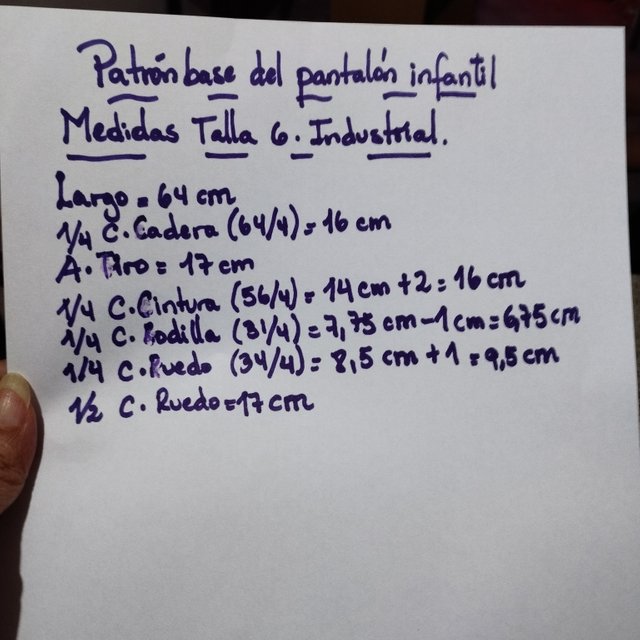 Patrón base del pantalón infantil
Medidas Talla 6. Industrial.
Largo = 64 cm
1/4 C. Cadera (64/4) = 16 cm
A. Tiro = 17 cm
1/4 C. Cintura (56/4) = 14 cm + 2 = 16 cm
1/4 C. Rodilla (31/4) = 7,75 cm - 1 cm = 6,75 cm
1/4 C. Ruedo (34/4) = 8,5 cm + 1 = 9,5 cm
1/2 C. Ruedo = 17 cm